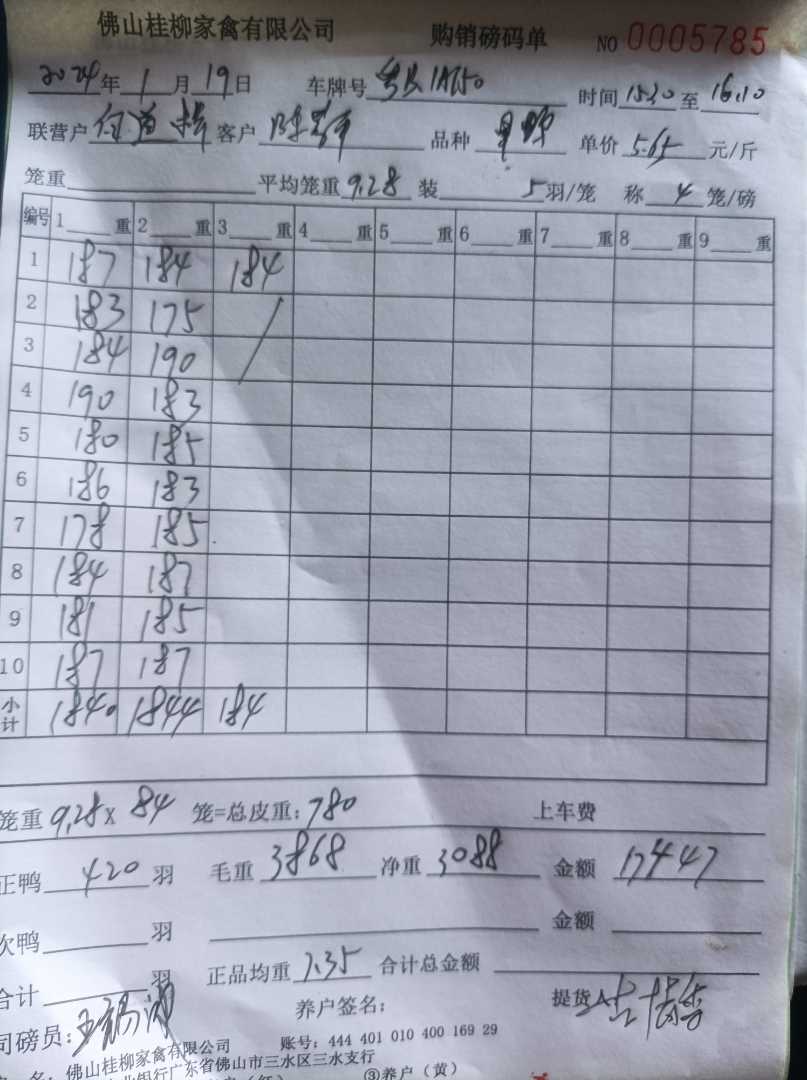 佛山桂柳家禽有限公司 购销磅码单 NO 0005785
2024年1月19日 车牌号 时间 15:30 至 16:10
联营户 客户 品种 单价 5.65 元/斤
笼重 平均笼重 9.28 装 5 羽/笼 称 4 笼/磅
编号 1 重 2 重 3 重 4 重 5 重 6 重 7 重 8 重 9 重
1 187 184 184
2 183 175
3 184 190
4 190 183
5 180 185
6 186 183
7 178 185
8 184 187
9 181 185
10 187 187
小计 1840 1844 184
笼重 9.28 x 84 笼=总皮重: 780 上车费
正鸭 420 羽 毛重 3868 净重 3088 金额 17447
次鸭 羽 金额
合计 羽 正品均重 7.35 合计总金额
司磅员: 养户签名: 提货人
名: 佛山桂柳家禽有限公司 账号: 444 401 010 400 169 29
业银行广东省佛山市三水区三水支行
③养户（黄）